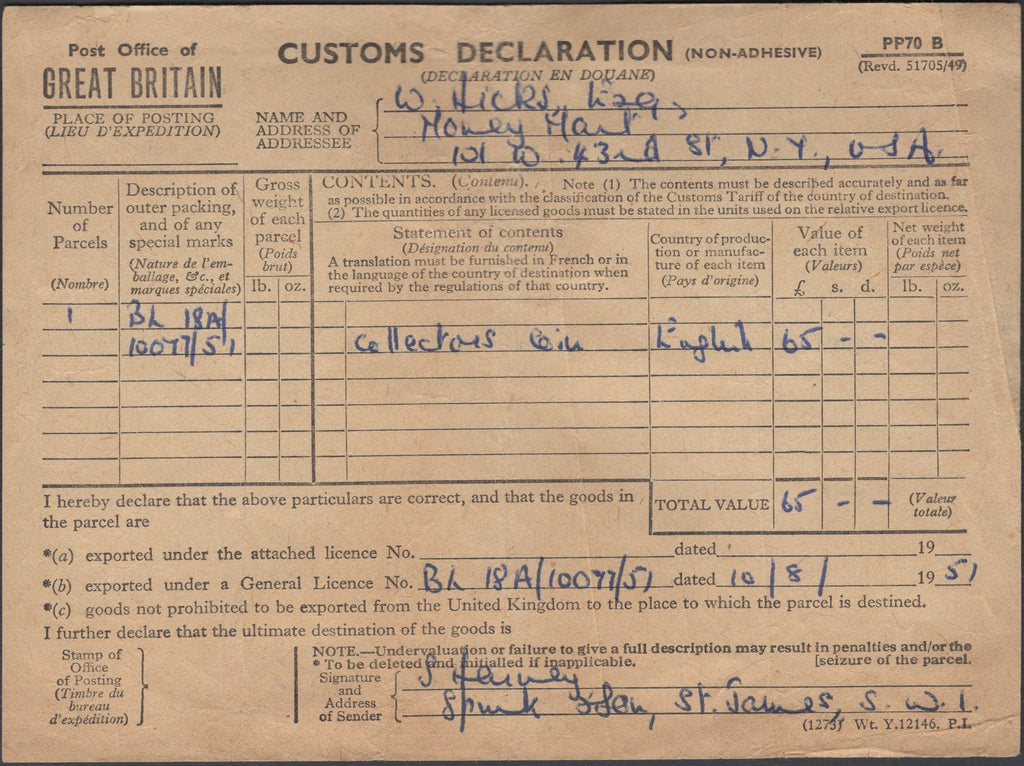 Post Office of
GREAT BRITAIN
PLACE OF POSTING
(LIEU D'EXPEDITION)
CUSTOMS DECLARATION (NON-ADHESIVE)
(DECLARATION EN DOUANE)
PP70 B
(Revd. 51705/49)
NAME AND
ADDRESS OF
ADDRESSEE
W. Hicks, Esq,
Money Mart
101 W. 43rd St, N.Y., USA.
Number
of
Parcels
(Nombre)
Description of
outer packing,
and of any
special marks
(Nature de l'em-
ballage, &c., et
marques spéciales)
Gross
weight
of each
parcel
(Poids
brut)
lb. oz.
CONTENTS. (Contenu). Note (1) The contents must be described accurately and as far
as possible in accordance with the classification of the Customs Tariff of the country of destination.
(2) The quantities of any licensed goods must be stated in the units used on the relative export licence.
Statement of contents
(Désignation du contenu)
A translation must be furnished in French or in
the language of the country of destination when
required by the regulations of that country.
Country of produc-
tion or manufac-
ture of each item
(Pays d'origine)
Value of
each item
(Valeurs)
£ s. d.
Net weight
of each item
(Poids net
par espèce)
lb. oz.
1 BL 18A/
10077/51 Collectors Coin English 65 - -
I hereby declare that the above particulars are correct, and that the goods in
the parcel are
TOTAL VALUE 65 - - (Valeur
totale)
*(a) exported under the attached licence No. dated 19
*(b) exported under a General Licence No. BL 18A/10077/51 dated 10/8/ 1951
*(c) goods not prohibited to be exported from the United Kingdom to the place to which the parcel is destined.
I further declare that the ultimate destination of the goods is
Stamp of
Office
of Posting
(Timbre du
bureau
d'expédition)
NOTE.—Undervaluation or failure to give a full description may result in penalties and/or the
* To be deleted and initialled if inapplicable. [seizure of the parcel.
Signature
and
Address
of Sender
S Harvey
Spink &Son, St. James, S.W.1.
(1273) Wt. Y.12146. P.I.